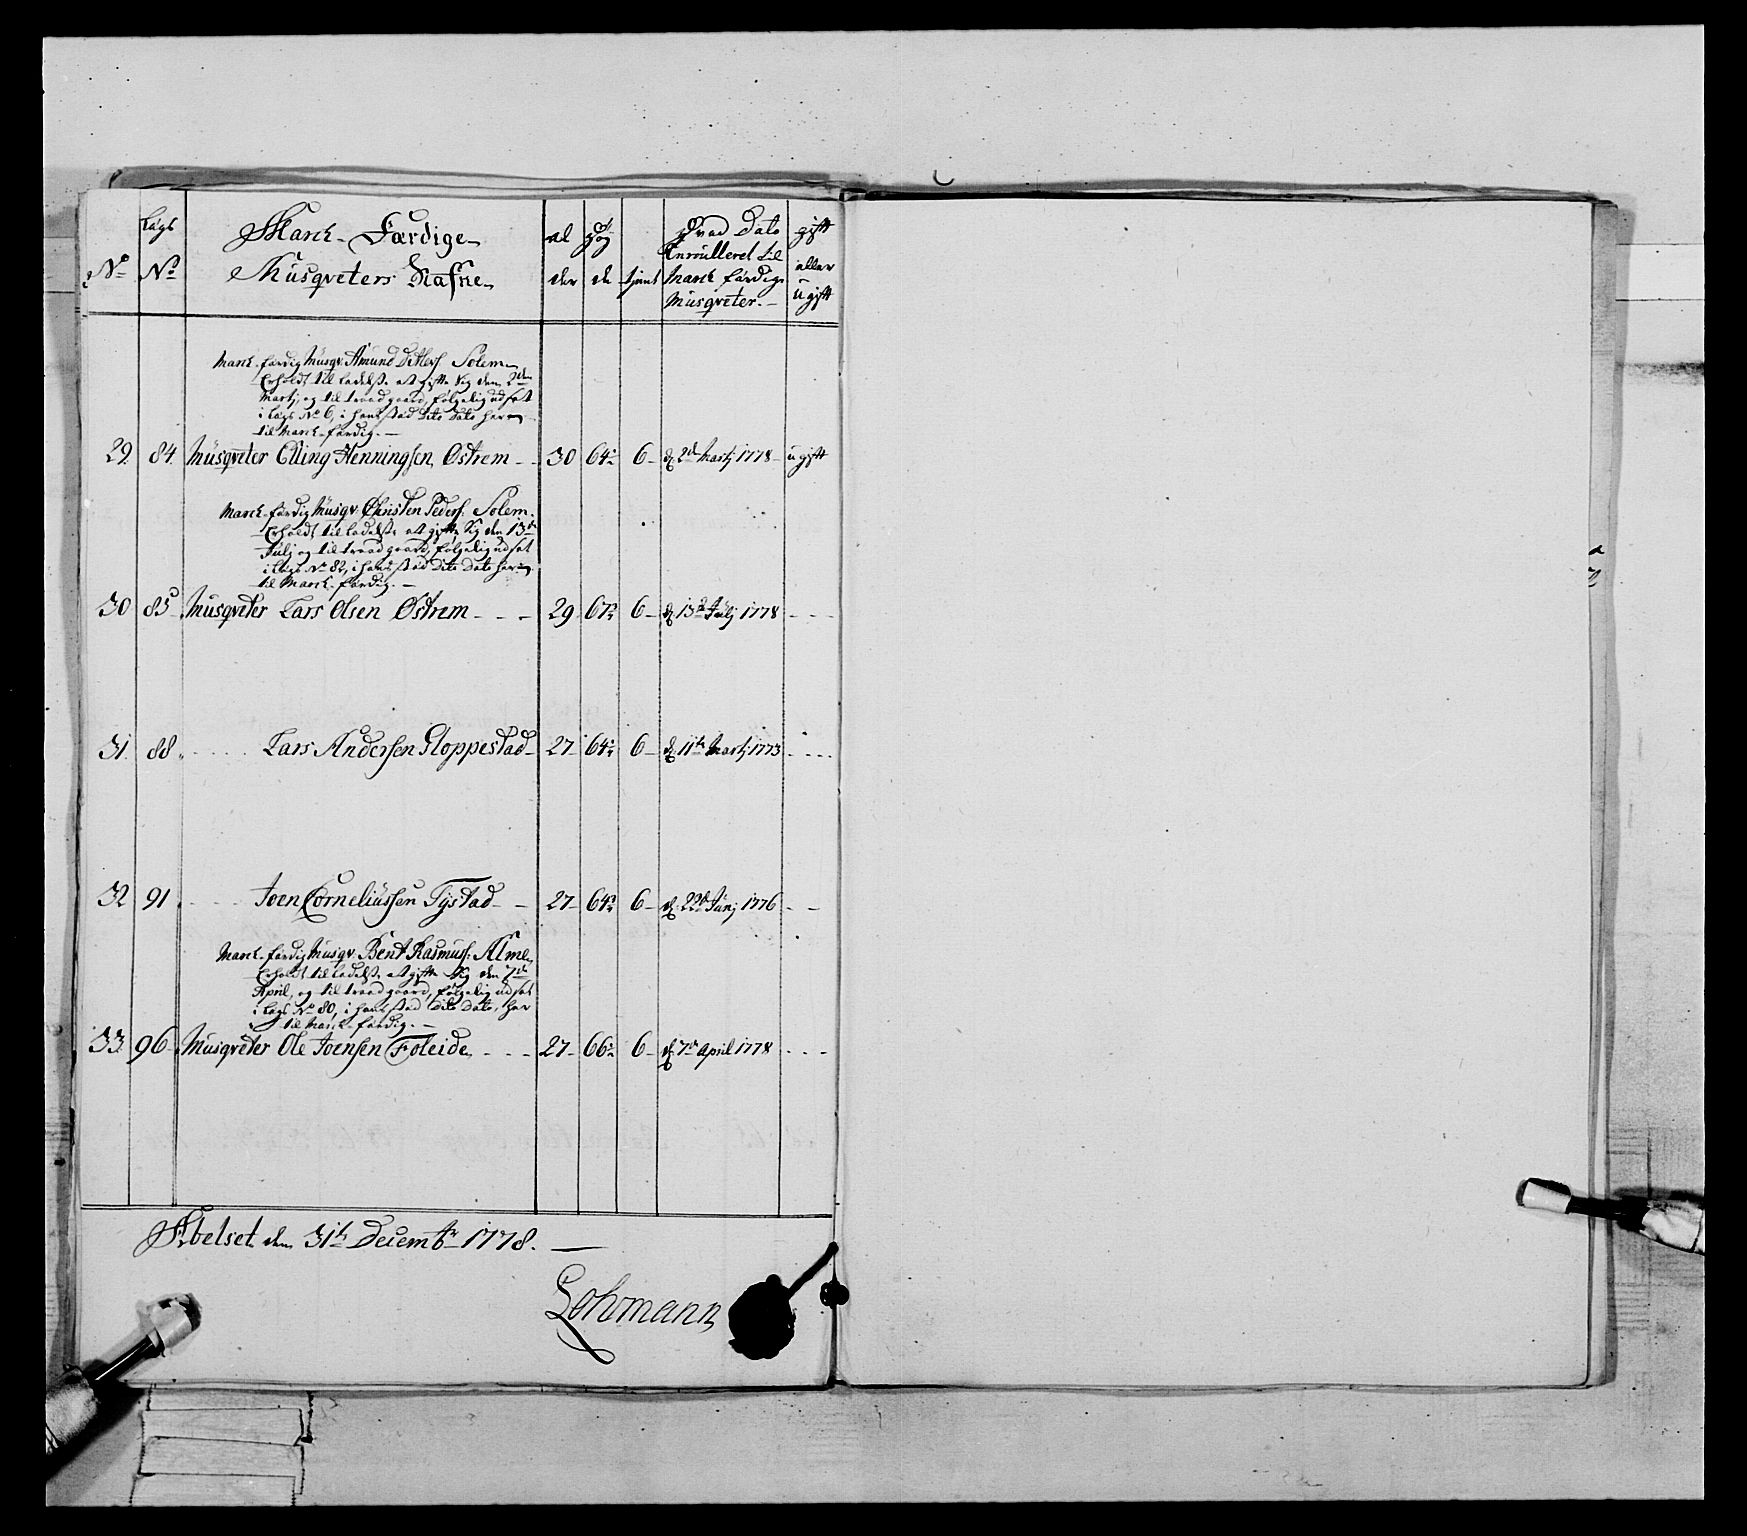 Lægs
Marck-Færdige
al Høy Hvad Dato gift
Enroulleret til
No No Musqveters Nafne der de tjent Marck færdig eller
Musqveter.- Ugift
Marck-færdig Musqv: Amund Detlefs: Solem
Erholdt tilladelse at gifte sig den 2den
Martj, og til traad gaard, følgelig udsat
i Lægs No 6, i hans stæd dito Dato her
til Marck-færdig.-
29. 84. Musqveter Elling Henningsen Østrem - - 30 64 6 - d: 2den Martj 1778 - ugift
Marck-færdig Musqv: Christen Peders: Solem
Erholdt tilladelse at gifte sig den 13de
Julj og til traad gaard, følgelig udsat
i Lægs No 82, i hans stæd dito Dato her
til Marck-færdig.-
30 85 Musqveter Lars Olsen Østrem - - - 29 67 6 - d: 13de Julj 1778 - - -
31. 88. - - - - Lars Andersen Gloppestad - 27 - 64 6 - d: 11te Martj 1773 - - -
32 91. - - - - Joen Corneliussen Tystad - - 27 - 64 6 - d: 22de Junj 1776 - -
Marck-færdig Musqv: Bent Rasmuss: Alme
Erholdt tilladelse at gifte sig den 7de
April, og til traad gaard, følgelig udsat
i Lægs No 80, i hans stæd dito Dato, her
til Marck-færdig.-
33. 96 - Musqveter Ole Joensen Foleide - - - 27 - 66 6 - d: 7de April 1778 - - -
Abelset den 31te Decembr 1778. -
Lohmann